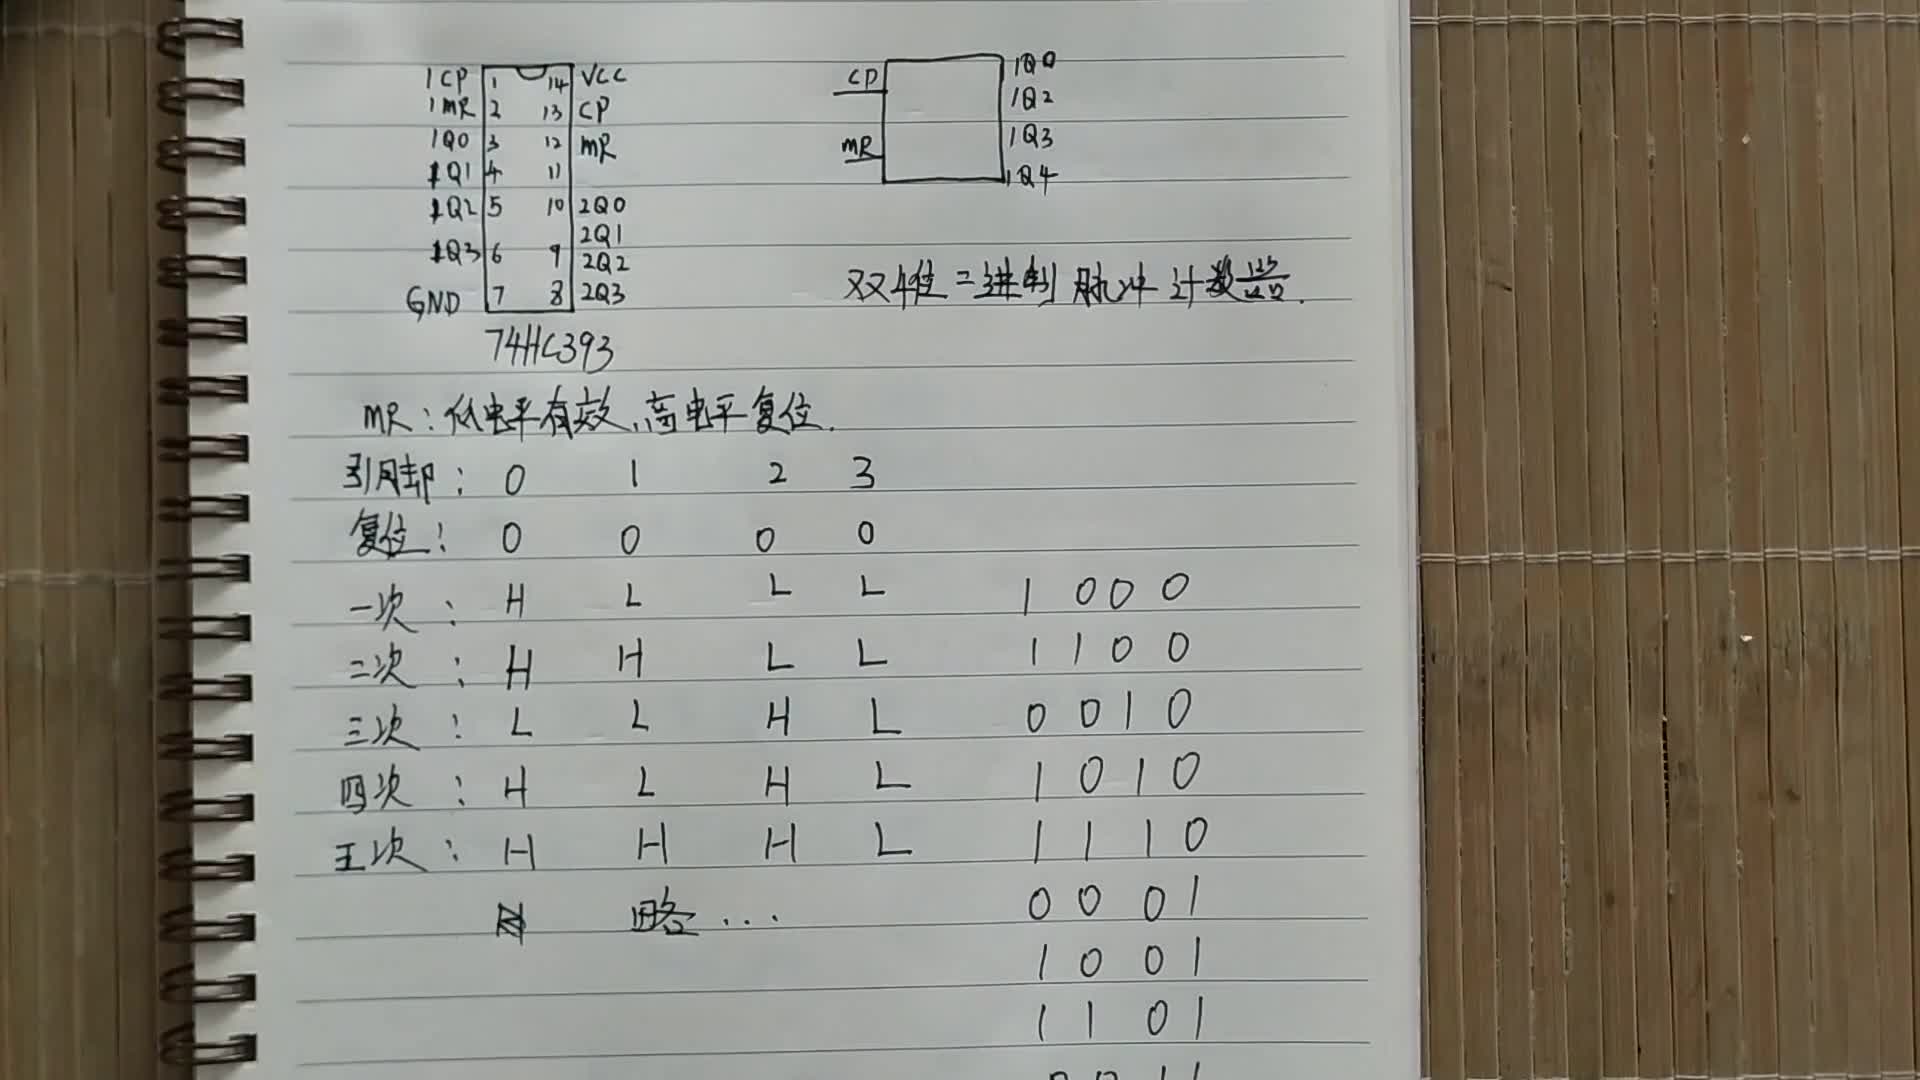 1CP 1 14 VCC
1MR 2 13 CP
1Q0 3 12 MR
1Q1 4 11
1Q2 5 10 2Q0
2Q1
1Q3 6 9 2Q2
GND 7 8 2Q3
74HC393
CP 1Q0
1Q2
MR 1Q3
1Q4
双4位二进制脉冲计数器.
MR:低电平有效,高电平复位.
引脚: 0 1 2 3
复位: 0 0 0 0
一次: H L L L 1 0 0 0
二次: H H L L 1 1 0 0
三次: L L H L 0 0 1 0
四次: H L H L 1 0 1 0
五次: H H H L 1 1 1 0
略... 0 0 0 1
1 0 0 1
1 1 0 1
0 0 1 1